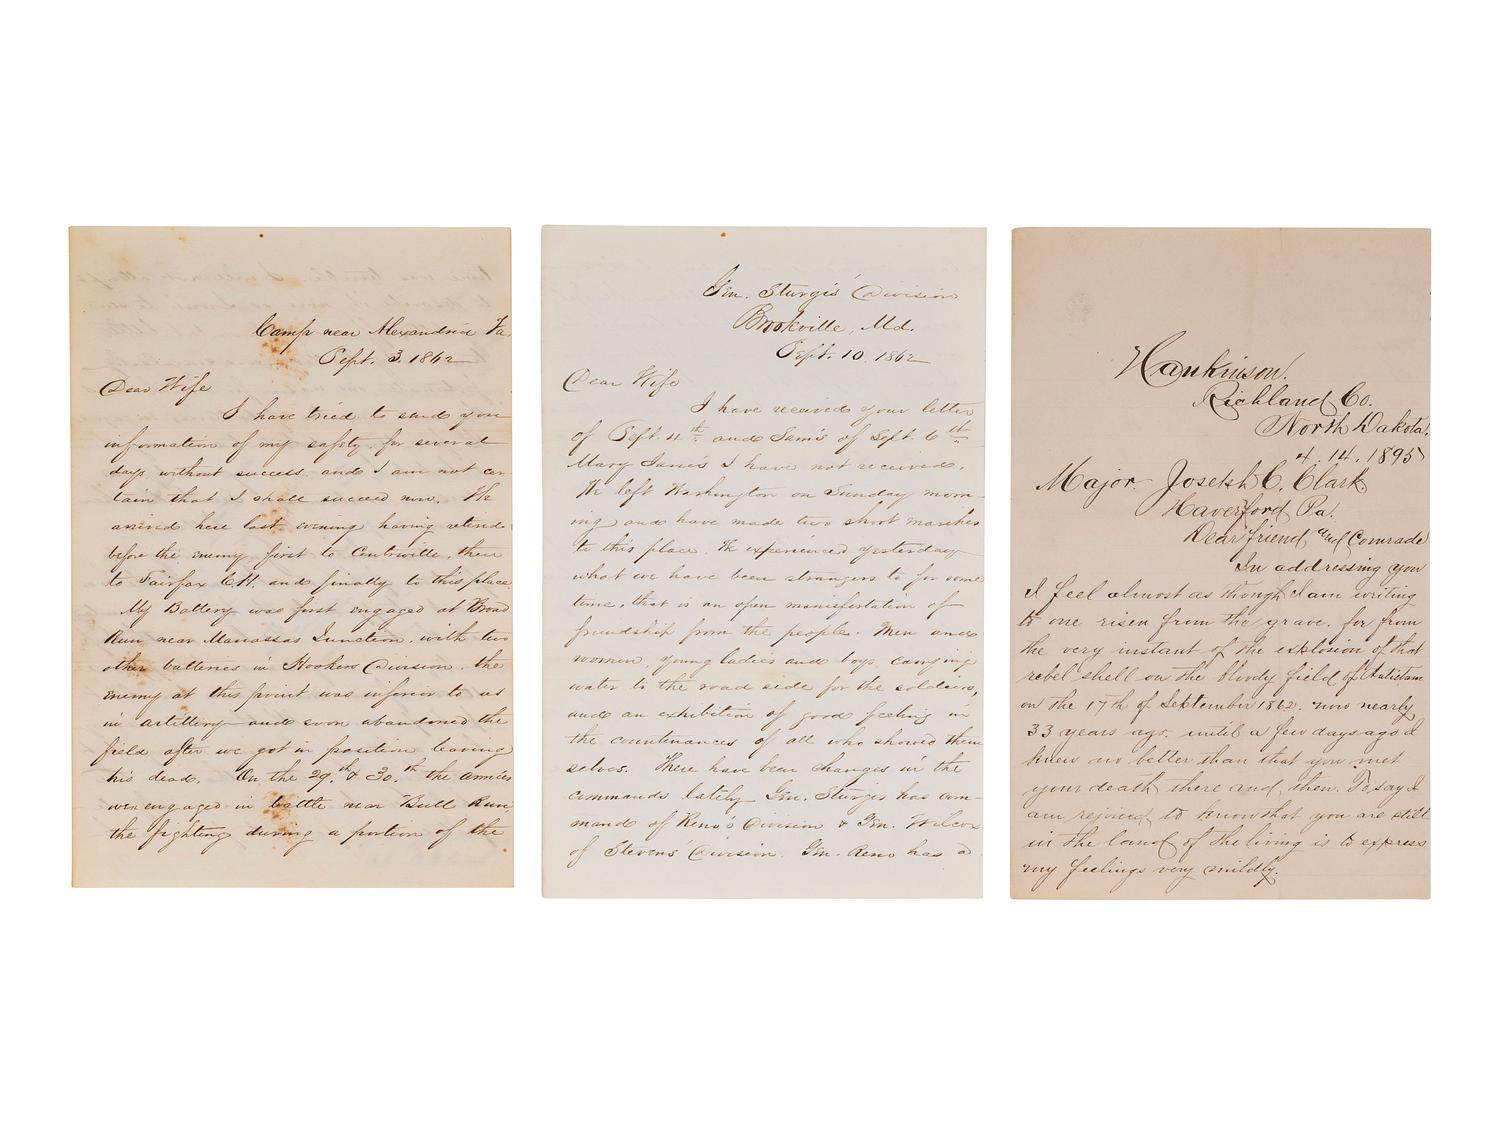 Camp near Alexandria Va.
Sept. 3. 1862
Dear Wife
I have tried to send you
information of my safety, for several
days without success and I am not cer-
tain that I shall succeed now. We
arrived here last evening having retired
before the enemy first to Centreville, then
to Fairfax C.H. and finally to this place
My Battery was first engaged at Broad
Run near Manassas Junction, with two
other batteries in Hookers Division, the
enemy at this point was inferior to us
in artillery and soon abandoned the
field after we got in position leaving
his dead. On the 29th & 30th the armies
were engaged in battle near Bull Run,
the fighting during a portion of the
Gen. Sturgis' Division
Brookville, Md.
Sept. 10. 1862
Dear Wife
I have received your letter
of Sept. 4th and Sam's of Sept. 6th
Mary Jane's I have not received.
We left Washington on Sunday morn-
ing and have made two short marches
to this place. We experienced yesterday
what we have been strangers to for some
time, that is an open manifestation of
friendship from the people. Men and
women, young ladies and boys, carrying
water to the road side for the soldiers,
and an exhibition of good feeling in
the countenances of all who showed them
selves. There have been changes in the
commands lately Gen. Sturgis has com-
mand of Reno's Division & Gen. Wilcox
of Stevens' Division. Gen. Reno has a
Hankinson!
Richland Co.
North Dakota!
4. 14. 1895
Major Joseph C. Clark
Haverford Pa!
Dear friend and Comrade
In addressing you
I feel almost as though I am writing
to one risen from the grave. for from
the very instant of the explosion of that
rebel shell on the bloody field of Antietam
on the 17th of September 1862. now nearly
33 years ago. until a few days ago I
knew no better than that you met
your death there and, then. To say I
am rejoiced to know that you are still
in the land of the living is to express
my feelings very mildly.